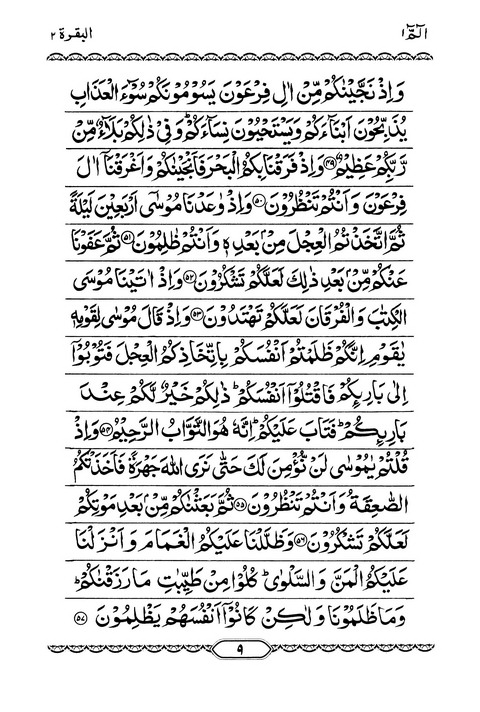 الٓمّٓ ١ البقرة ٢
وَاِذْ نَجَّيْنٰكُمْ مِّنْ اٰلِ فِرْعَوْنَ يَسُوْمُوْنَكُمْ سُوْٓءَ الْعَذَابِ
يُذَبِّحُوْنَ اَبْنَآءَكُمْ وَيَسْتَحْيُوْنَ نِسَآءَكُمْ ؕ وَفِيْ ذٰلِكُمْ بَلَآءٌ مِّنْ
رَّبِّكُمْ عَظِيْمٌ ﴿۴۹﴾ وَاِذْ فَرَقْنَا بِكُمُ الْبَحْرَ فَاَنْجَيْنٰكُمْ وَاَغْرَقْنَآ اٰلَ
فِرْعَوْنَ وَاَنْتُمْ تَنْظُرُوْنَ ﴿۵۰﴾ وَاِذْ وٰعَدْنَا مُوْسٰٓى اَرْبَعِيْنَ لَيْلَةً
ثُمَّ اتَّخَذْتُمُ الْعِجْلَ مِنْۢ بَعْدِهٖ وَاَنْتُمْ ظٰلِمُوْنَ ﴿۵۱﴾ ثُمَّ عَفَوْنَا
عَنْكُمْ مِّنْۢ بَعْدِ ذٰلِكَ لَعَلَّكُمْ تَشْكُرُوْنَ ﴿۵۲﴾ وَاِذْ اٰتَيْنَا مُوْسَى
الْكِتٰبَ وَالْفُرْقَانَ لَعَلَّكُمْ تَهْتَدُوْنَ ﴿۵۳﴾ وَاِذْ قَالَ مُوْسٰى لِقَوْمِهٖ
يٰقَوْمِ اِنَّكُمْ ظَلَمْتُمْ اَنْفُسَكُمْ بِاتِّخَاذِكُمُ الْعِجْلَ فَتُوْبُوْٓا
اِلٰى بَارِئِكُمْ فَاقْتُلُوْٓا اَنْفُسَكُمْ ؕ ذٰلِكُمْ خَيْرٌ لَّكُمْ عِنْدَ
بَارِئِكُمْ ؕ فَتَابَ عَلَيْكُمْ ؕ اِنَّهٗ هُوَ التَّوَّابُ الرَّحِيْمُ ﴿۵۴﴾ وَاِذْ
قُلْتُمْ يٰمُوْسٰى لَنْ نُّؤْمِنَ لَكَ حَتّٰى نَرَى اللّٰهَ جَهْرَةً فَاَخَذَتْكُمُ
الصّٰعِقَةُ وَاَنْتُمْ تَنْظُرُوْنَ ﴿۵۵﴾ ثُمَّ بَعَثْنٰكُمْ مِّنْۢ بَعْدِ مَوْتِكُمْ
لَعَلَّكُمْ تَشْكُرُوْنَ ﴿۵۶﴾ وَظَلَّلْنَا عَلَيْكُمُ الْغَمَامَ وَاَنْزَلْنَا
عَلَيْكُمُ الْمَنَّ وَالسَّلْوٰى ؕ كُلُوْا مِنْ طَيِّبٰتِ مَا رَزَقْنٰكُمْ ؕ
وَمَا ظَلَمُوْنَا وَلٰكِنْ كَانُوْٓا اَنْفُسَهُمْ يَظْلِمُوْنَ ﴿۵۷﴾
۹